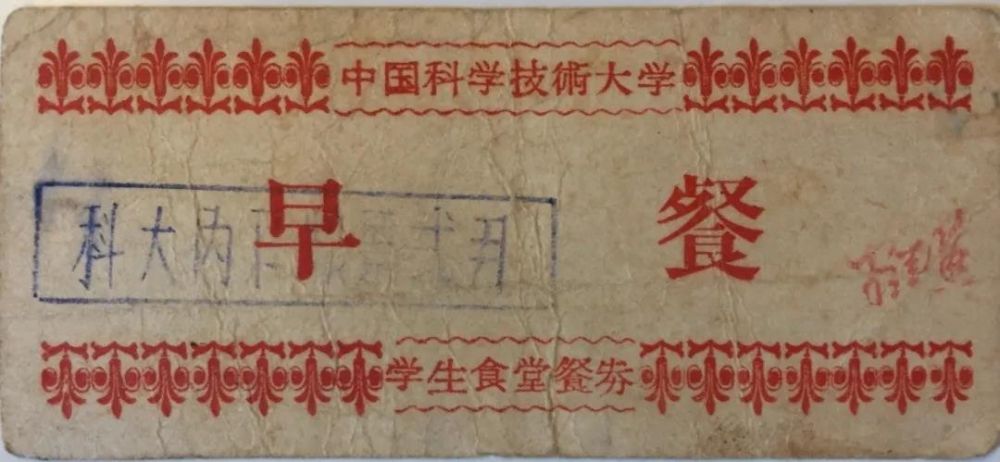 中国科学技術大学
早餐
科大内
学生食堂餐券